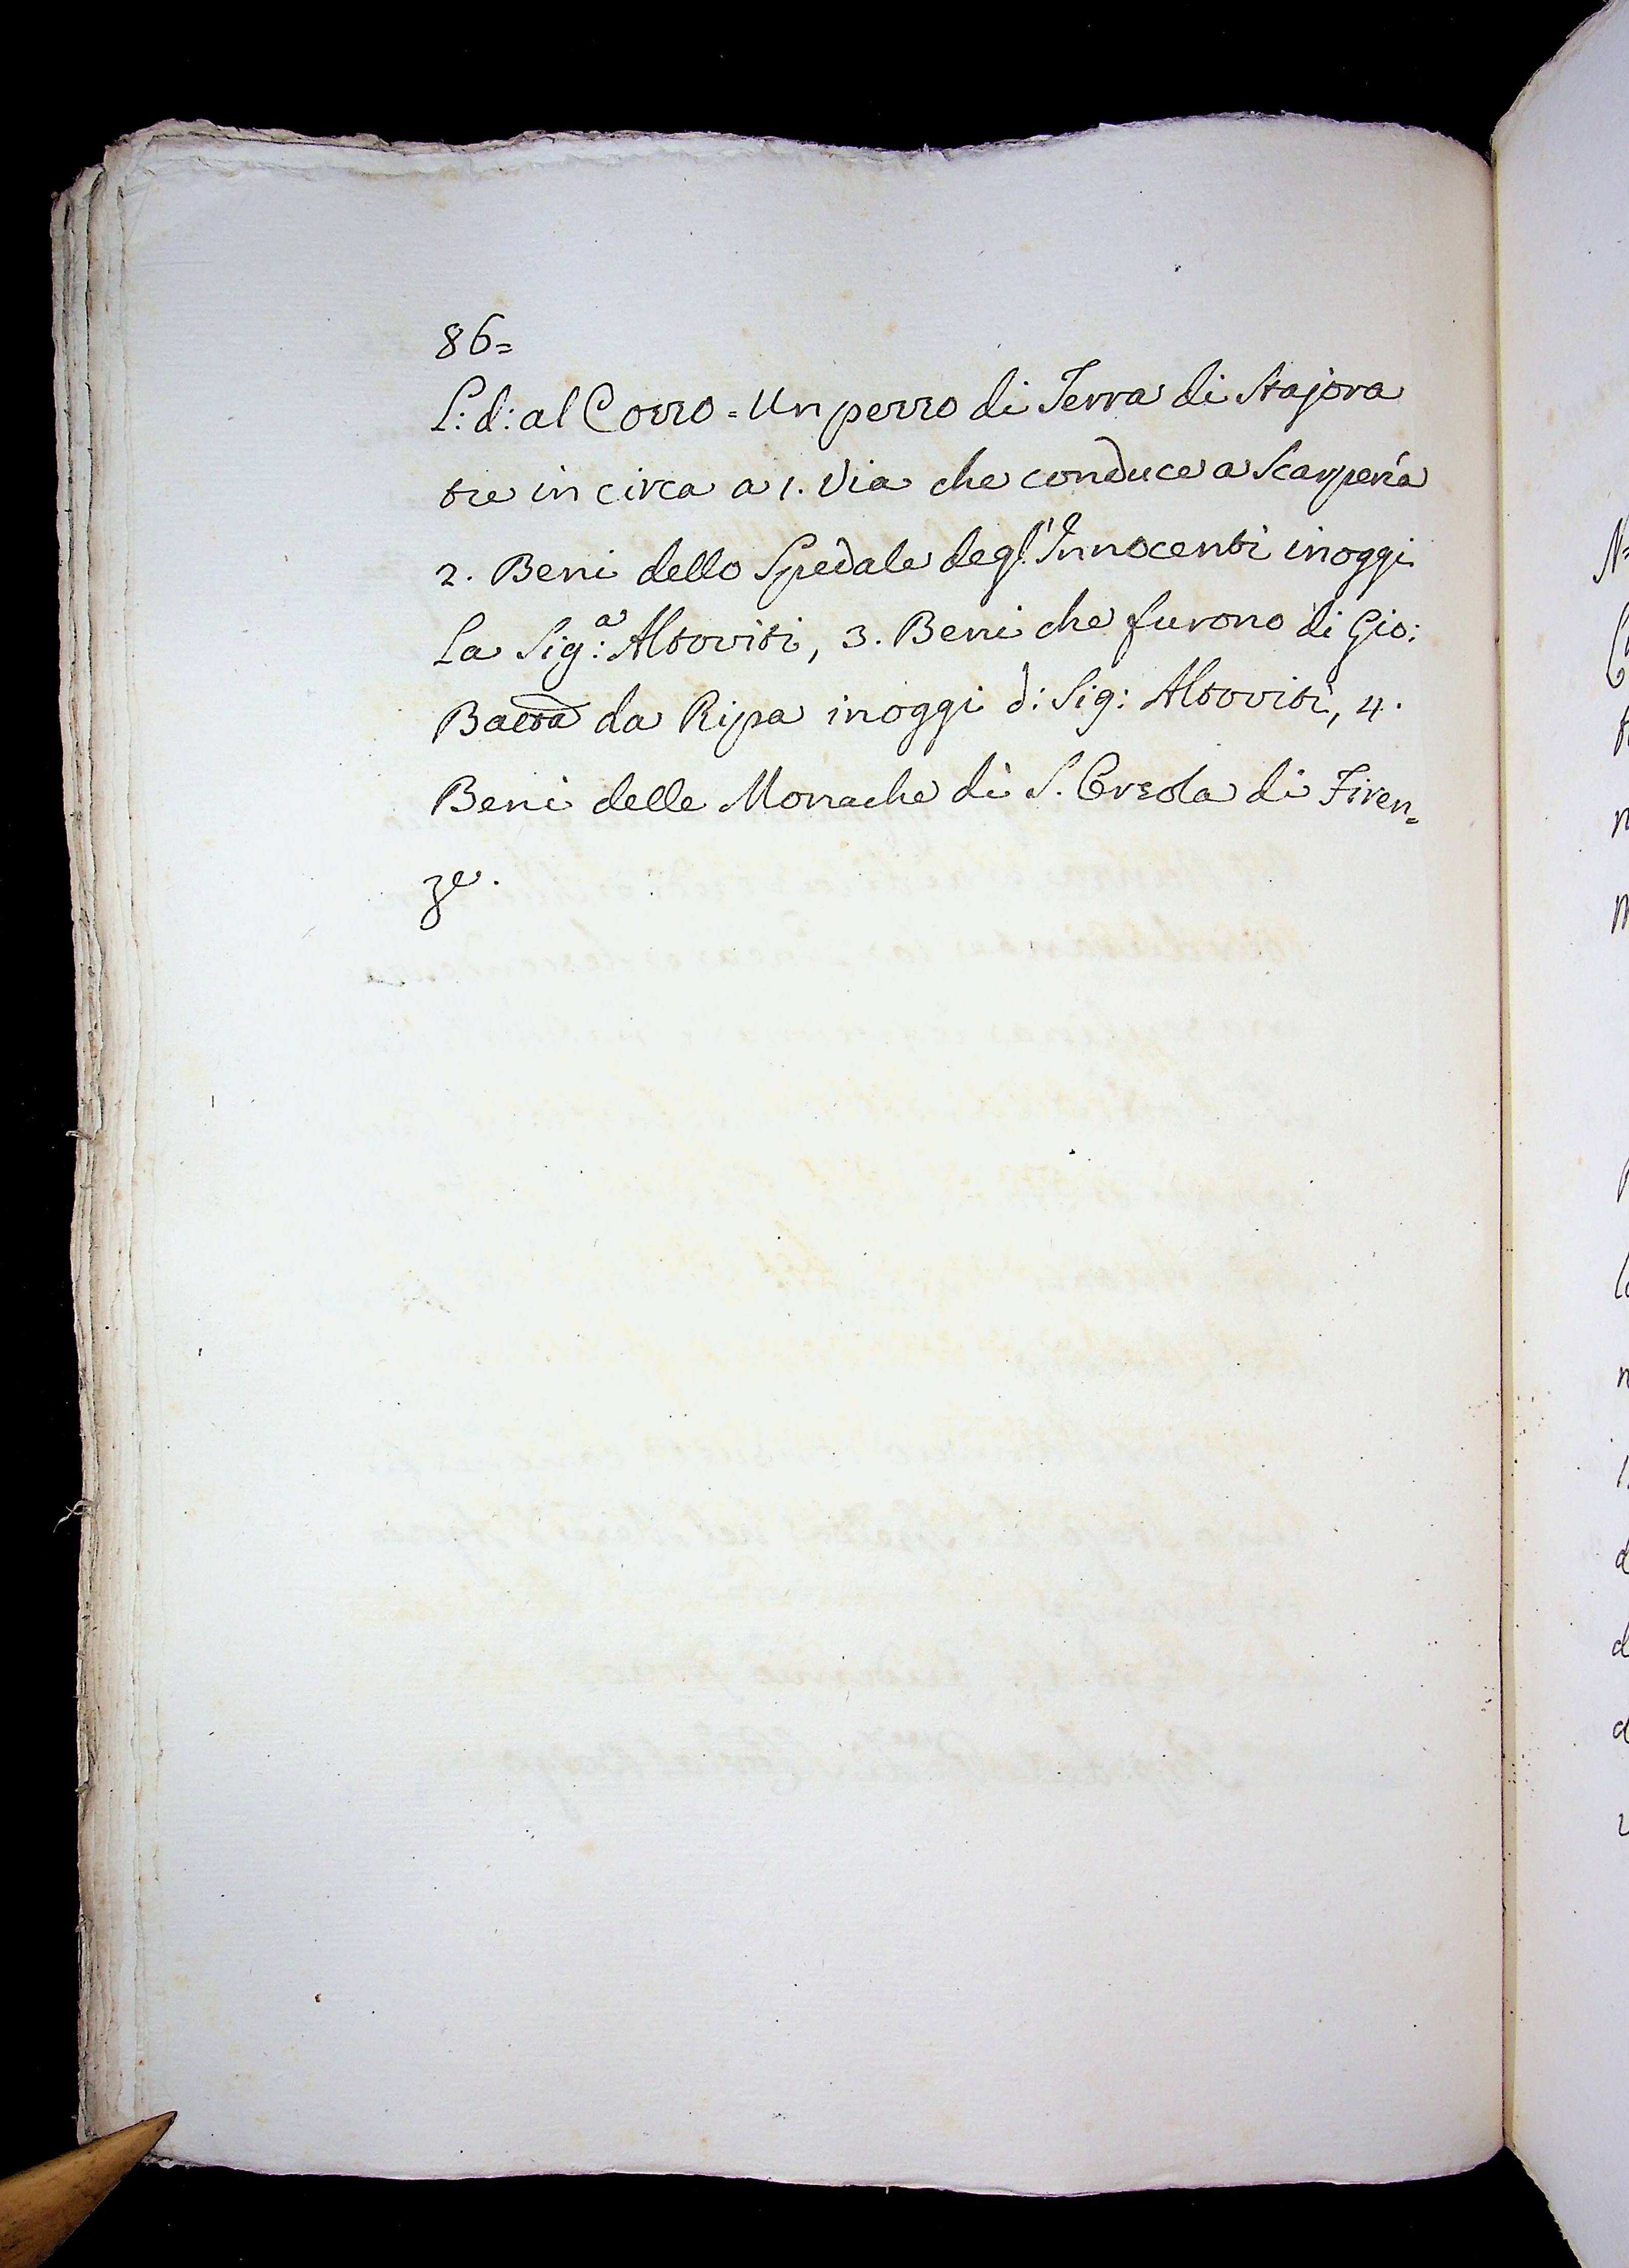 86=
L: d: al Pozzo = Un pezzo di Terra di Stajora
tre in circa a 1. Via che conduce a Scarperia
2. Beni dello Spedale degl'Innocenti inoggi
La Sig:ª Altoviti, 3. Beni che furono di Gio:
Batta da Ripa inoggi d: Sig: Altoviti, 4.
Beni delle Monache di S. Orsola di Firen=
ze.